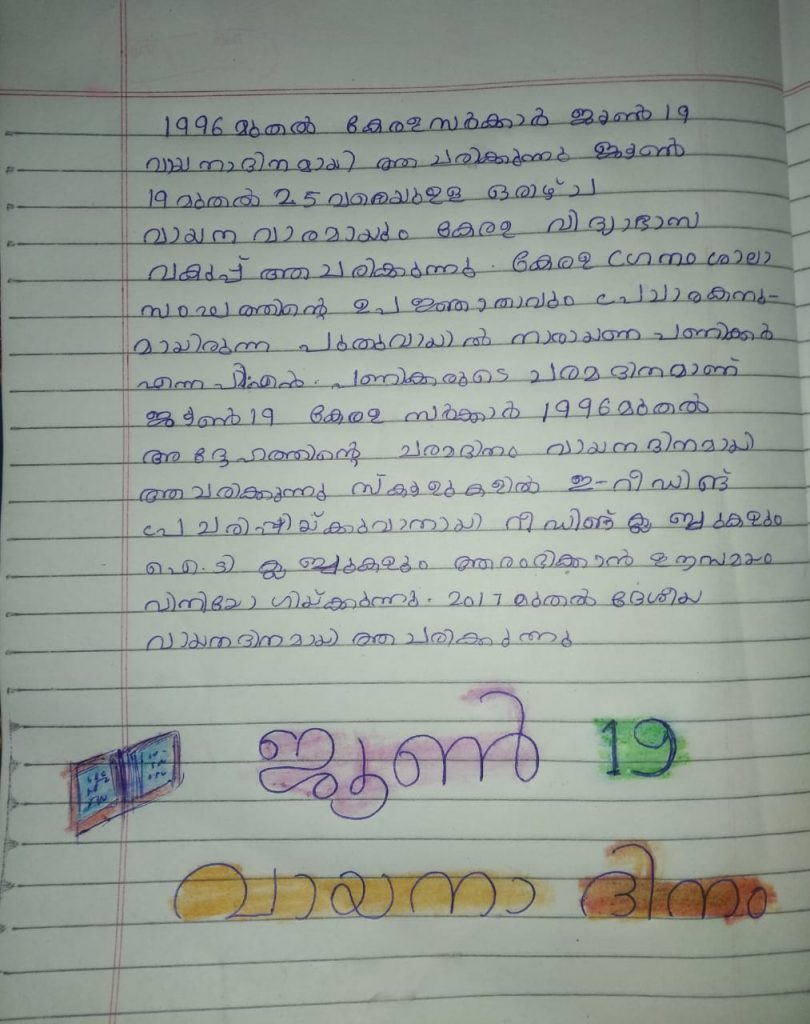 1996 മുതൽ കേരള സർക്കാർ ജൂൺ 19
വായനാദിനമായി ആചരിക്കുന്നു ജൂൺ
19 മുതൽ 25 വരെയുള്ള ഒരാഴ്ച
വായന വാരമായും കേരള വിദ്യാഭാസ
വകുപ്പ് ആചരിക്കുന്നു. കേരള ഗ്രന്ഥശാലാ
സംഘത്തിന്റെ ഉപജ്ഞാതാവും പ്രചാരകനു-
മായിരുന്ന പുതുവായിൽ നാരായണ പണിക്കർ
എന്ന പി.എൻ. പണികരുടെ ചരമദിനമാണ്
ജൂൺ 19 കേരള സർക്കാർ 1996 മുതൽ
അദ്ദേഹത്തിന്റെ ചരമദിനം വായനദിനമായി
ആചരിക്കുന്നു സ്കൂളുകളിൽ ഇ-റീഡിങ്ങ്
റീഡിങ്ങ് ക്ലബ്ബുകളും
ഐ.ടി ക്ലബ്ബുകളും ആരംഭിക്കാൻ
വിനിയോഗിയ്ക്കുന്നു. 2017 മുതൽ ദേശീയ
വായനദിനമായി ആചരിക്കുന്നു
ജൂൺ 19
വായനാ ദിനം